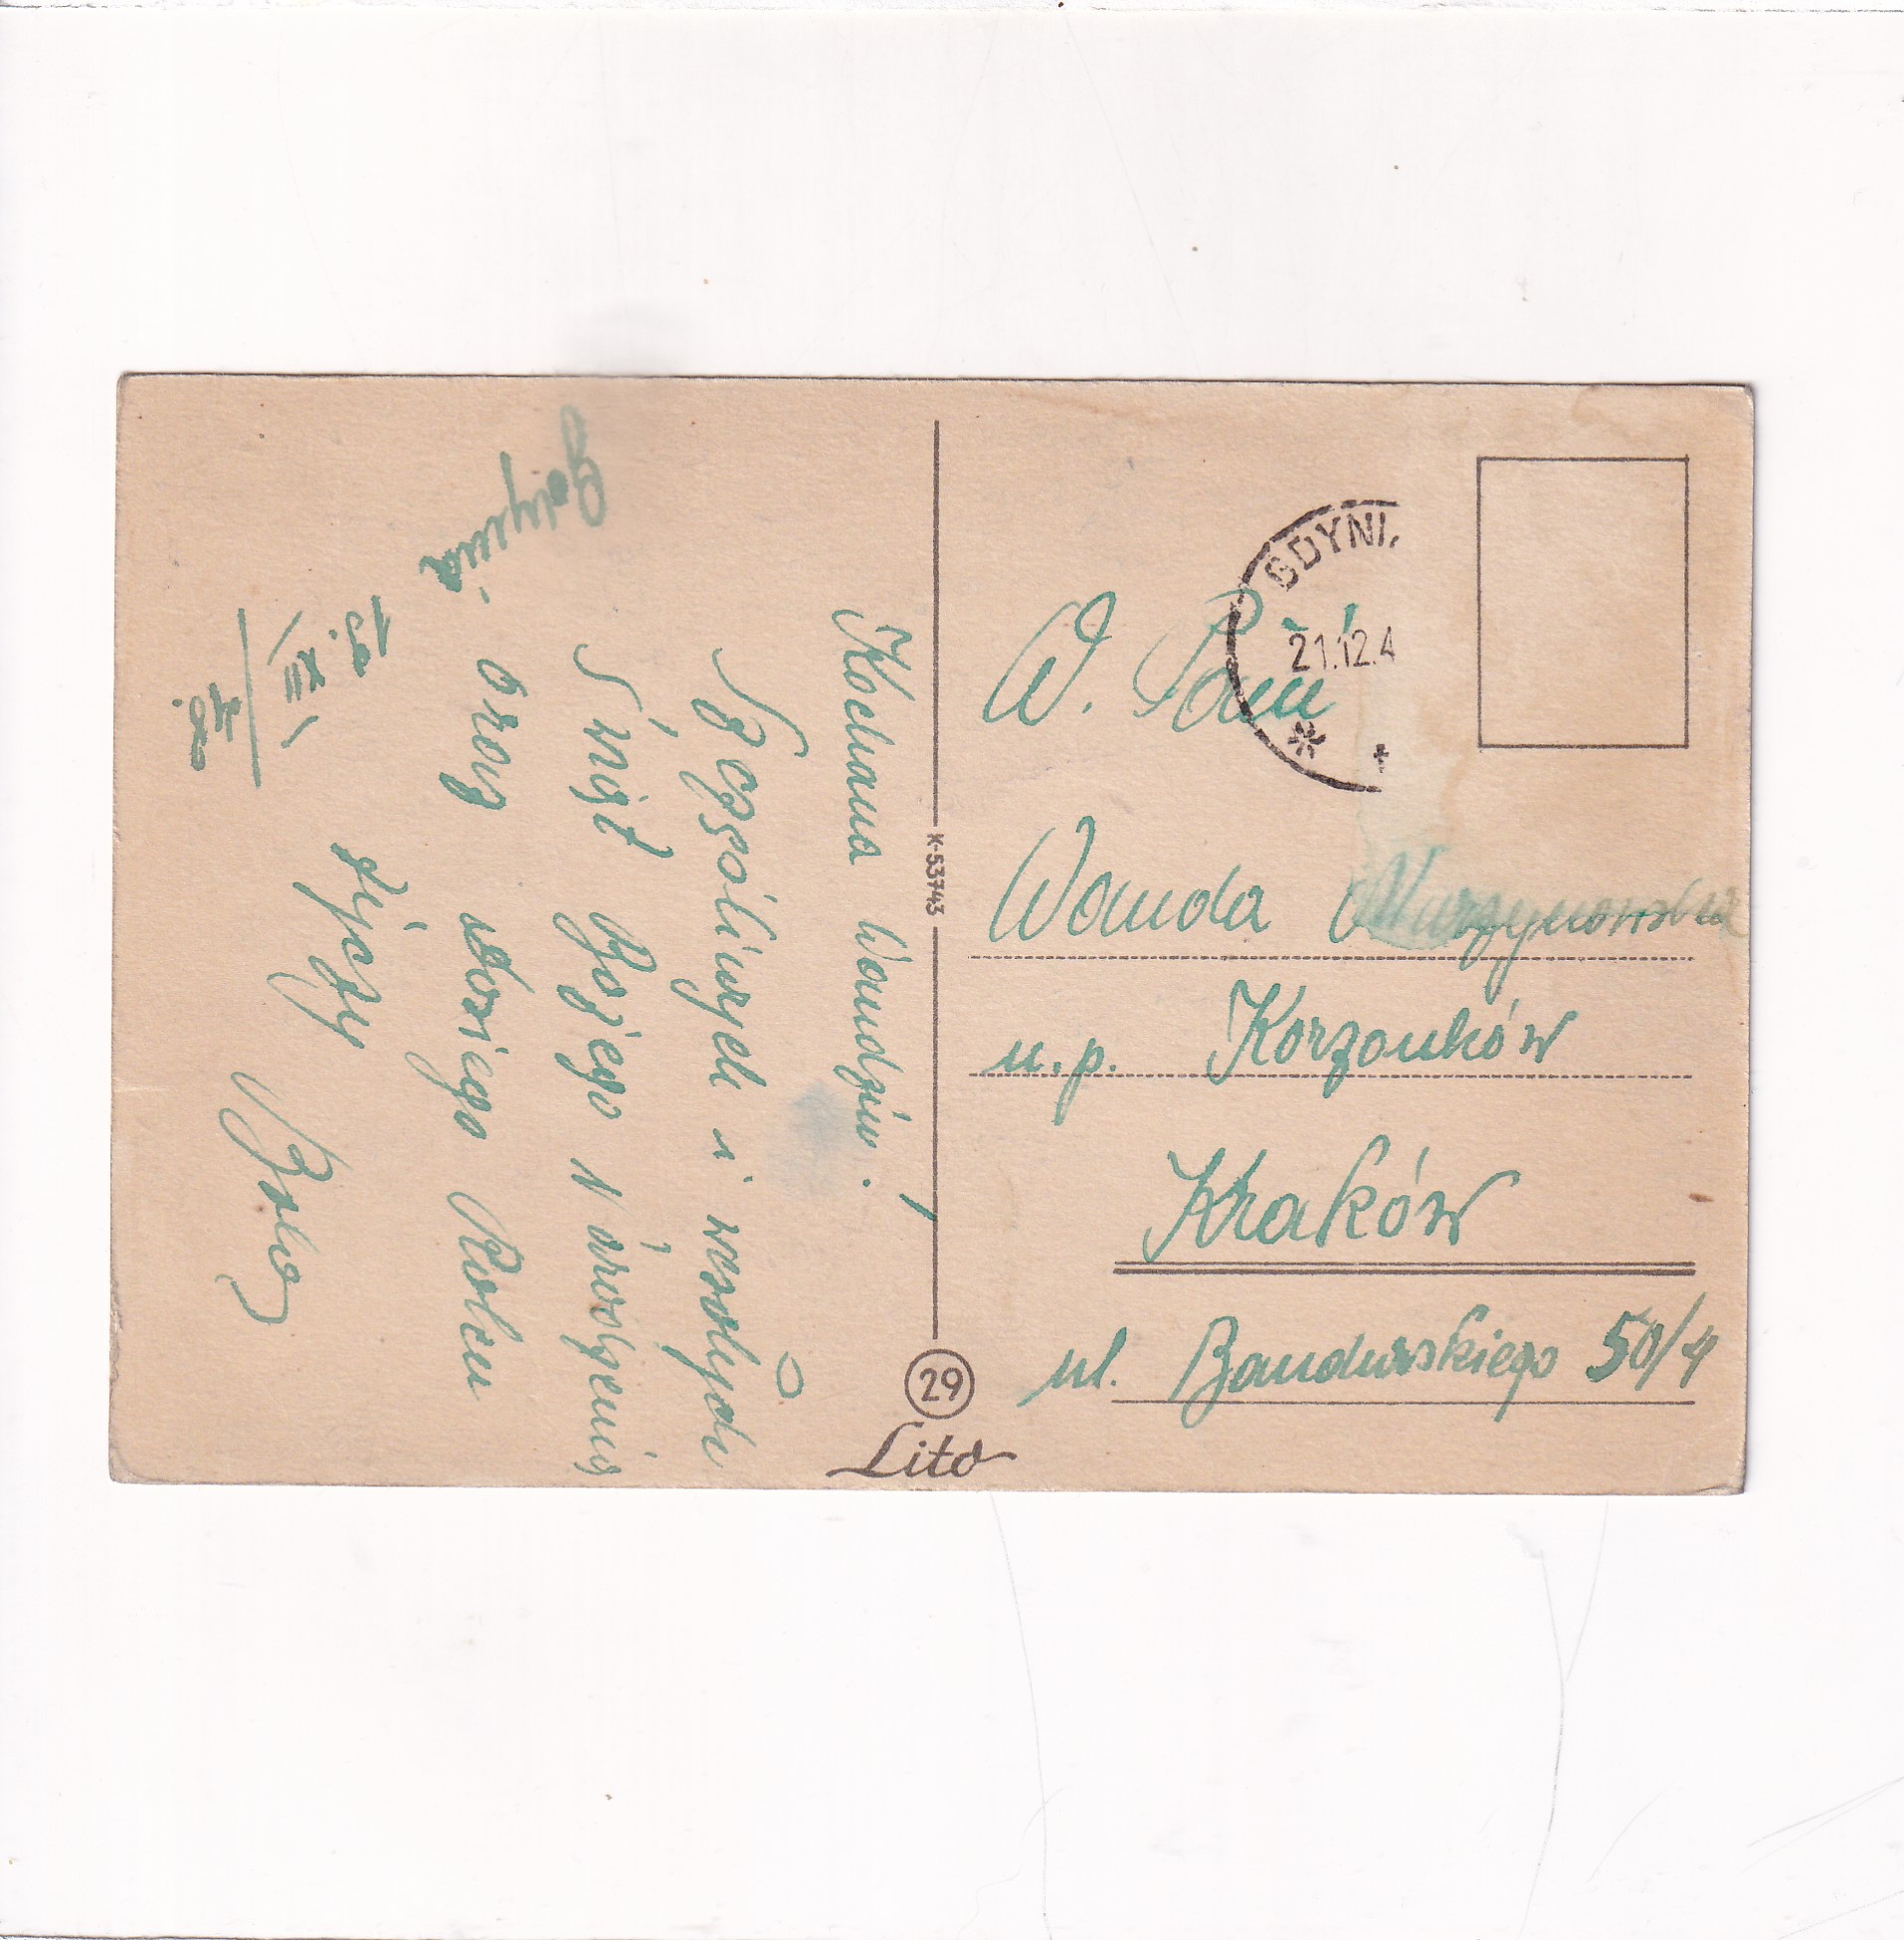 Gdynia
19. XII
48.
Kochana Wandziu!
Szczęśliwych i wesołych
Świąt Bożego Narodzenia
oraz Nowego Roku
życzy
K-53743
29
Lito
GDYNI
21.12.4
W. Pani
Wanda Murzynowska
u.p. Korzonków
Kraków
ul. Bandurskiego 50/4